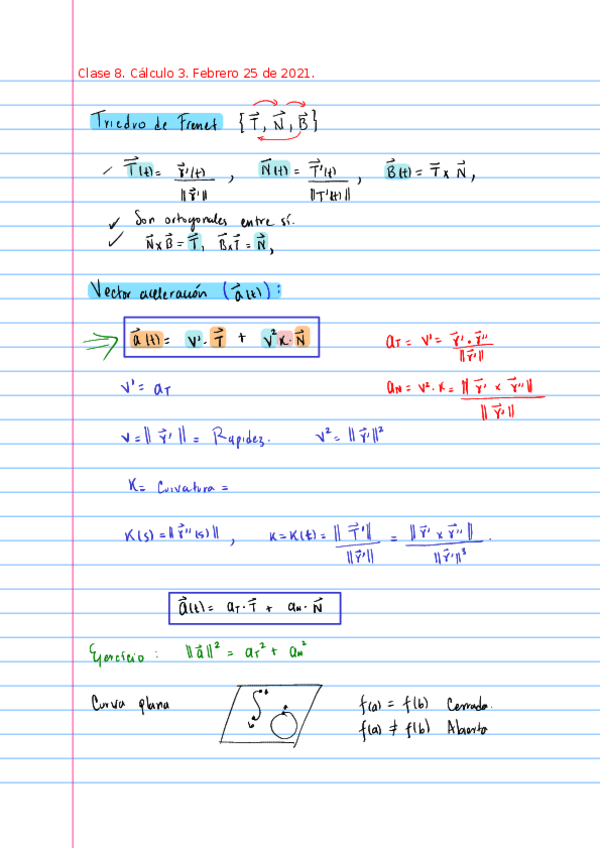 Clase 8. Cálculo 3. Febrero 25 de 2021.
Triedro de Frenet {T⃗, N⃗, B⃗}
✓ T⃗(t) = r⃗'(t) / ||r⃗'|| , N⃗(t) = T⃗'(t) / ||T'(t)|| , B⃗(t) = T⃗ x N⃗,
✓ Son ortogonales entre sí.
✓ N⃗ x B⃗ = T⃗, B⃗ x T⃗ = N⃗,
Vector aceleración (a⃗(t)):
a⃗(t) = v'·T⃗ + v²κ·N⃗
a_T = v' = r⃗'·r⃗'' / ||r⃗'||
v' = a_T
a_N = v²·κ = ||r⃗' x r⃗''|| / ||r⃗'||
v = ||r⃗'|| = Rapidez. v² = ||r⃗'||²
κ = Curvatura =
κ(s) = ||r⃗''(s)|| , κ = κ(t) = ||T⃗'|| / ||r⃗'|| = ||r⃗' x r⃗''|| / ||r⃗'||³ .
a⃗(t) = a_T·T⃗ + a_N·N⃗
Ejercicio : ||a⃗||² = a_T² + a_N²
Curva plana
a
b
f(a) = f(b) Cerrada.
f(a) ≠ f(b) Abierta